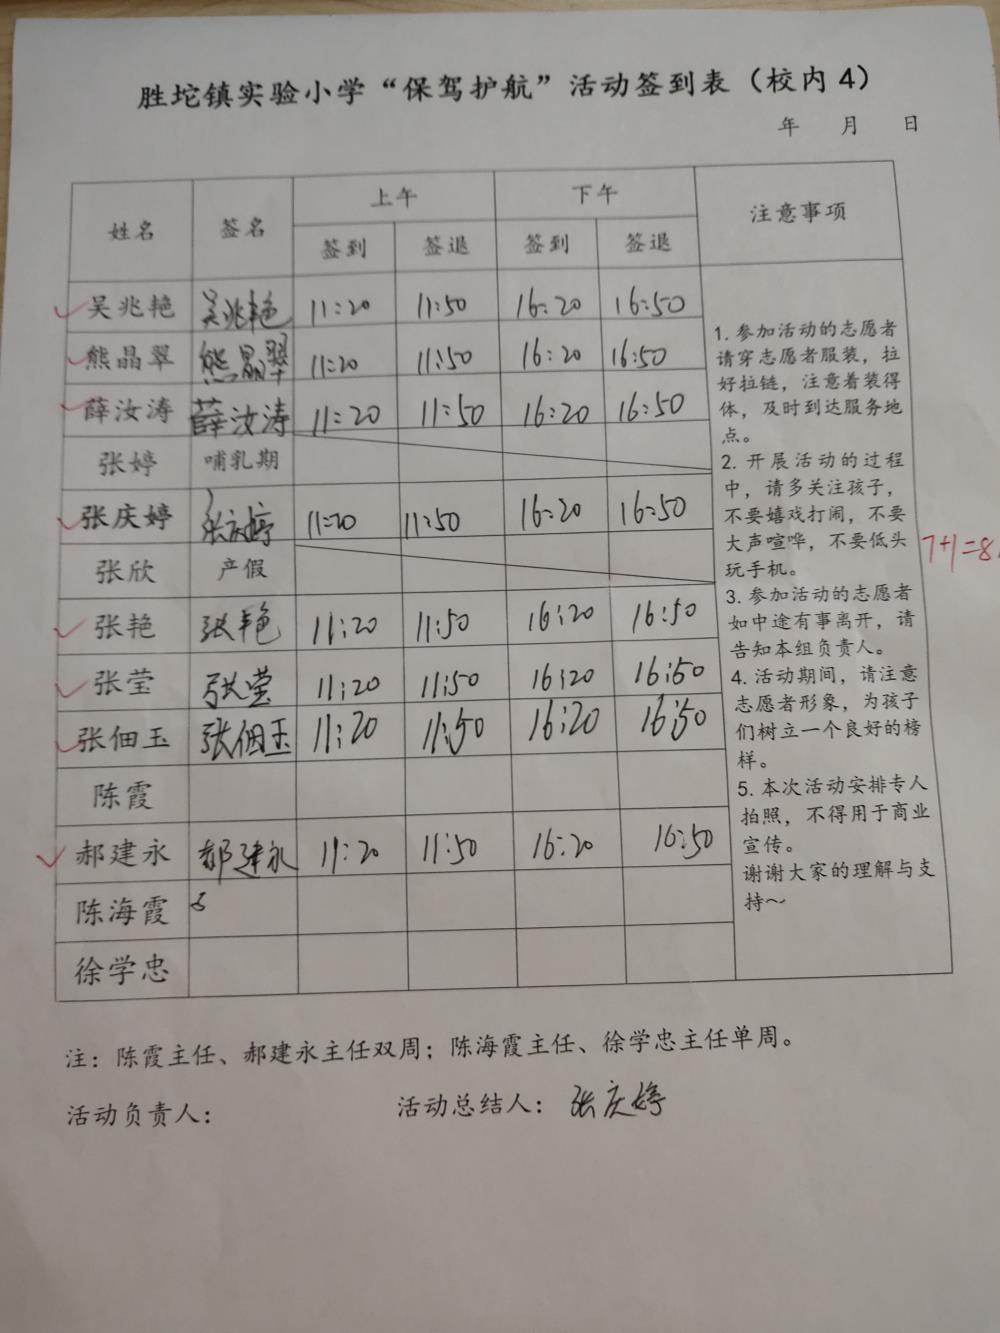 胜坨镇实验小学“保驾护航”活动签到表（校内4）
年 月 日
姓名 签名 上午 下午 注意事项
签到 签退 签到 签退
吴兆艳 吴兆艳 11:20 11:50 16:20 16:50
熊晶翠 熊晶翠 11:20 11:50 16:20 16:50
薛汝涛 薛汝涛 11:20 11:50 16:20 16:50
张婷 哺乳期
张庆婷 张庆婷 11:20 11:50 16:20 16:50
张欣 产假
张艳 张艳 11:20 11:50 16:20 16:50
张莹 张莹 11:20 11:50 16:20 16:50
张佃玉 张佃玉 11:20 11:50 16:20 16:50
陈霞
郝建永 郝建永 11:20 11:50 16:20 16:50
陈海霞
徐学忠
1. 参加活动的志愿者
请穿志愿者服装，拉
好拉链，注意着装得
体，及时到达服务地
点。
2. 开展活动的过程
中，请多关注孩子，
不要嬉戏打闹，不要
大声喧哗，不要低头
玩手机。
3. 参加活动的志愿者
如中途有事离开，请
告知本组负责人。
4. 活动期间，请注意
志愿者形象，为孩子
们树立一个良好的榜
样。
5. 本次活动安排专人
拍照，不得用于商业
宣传。
谢谢大家的理解与支
持～
7+1=8
注：陈霞主任、郝建永主任双周；陈海霞主任、徐学忠主任单周。
活动负责人： 活动总结人：张庆婷